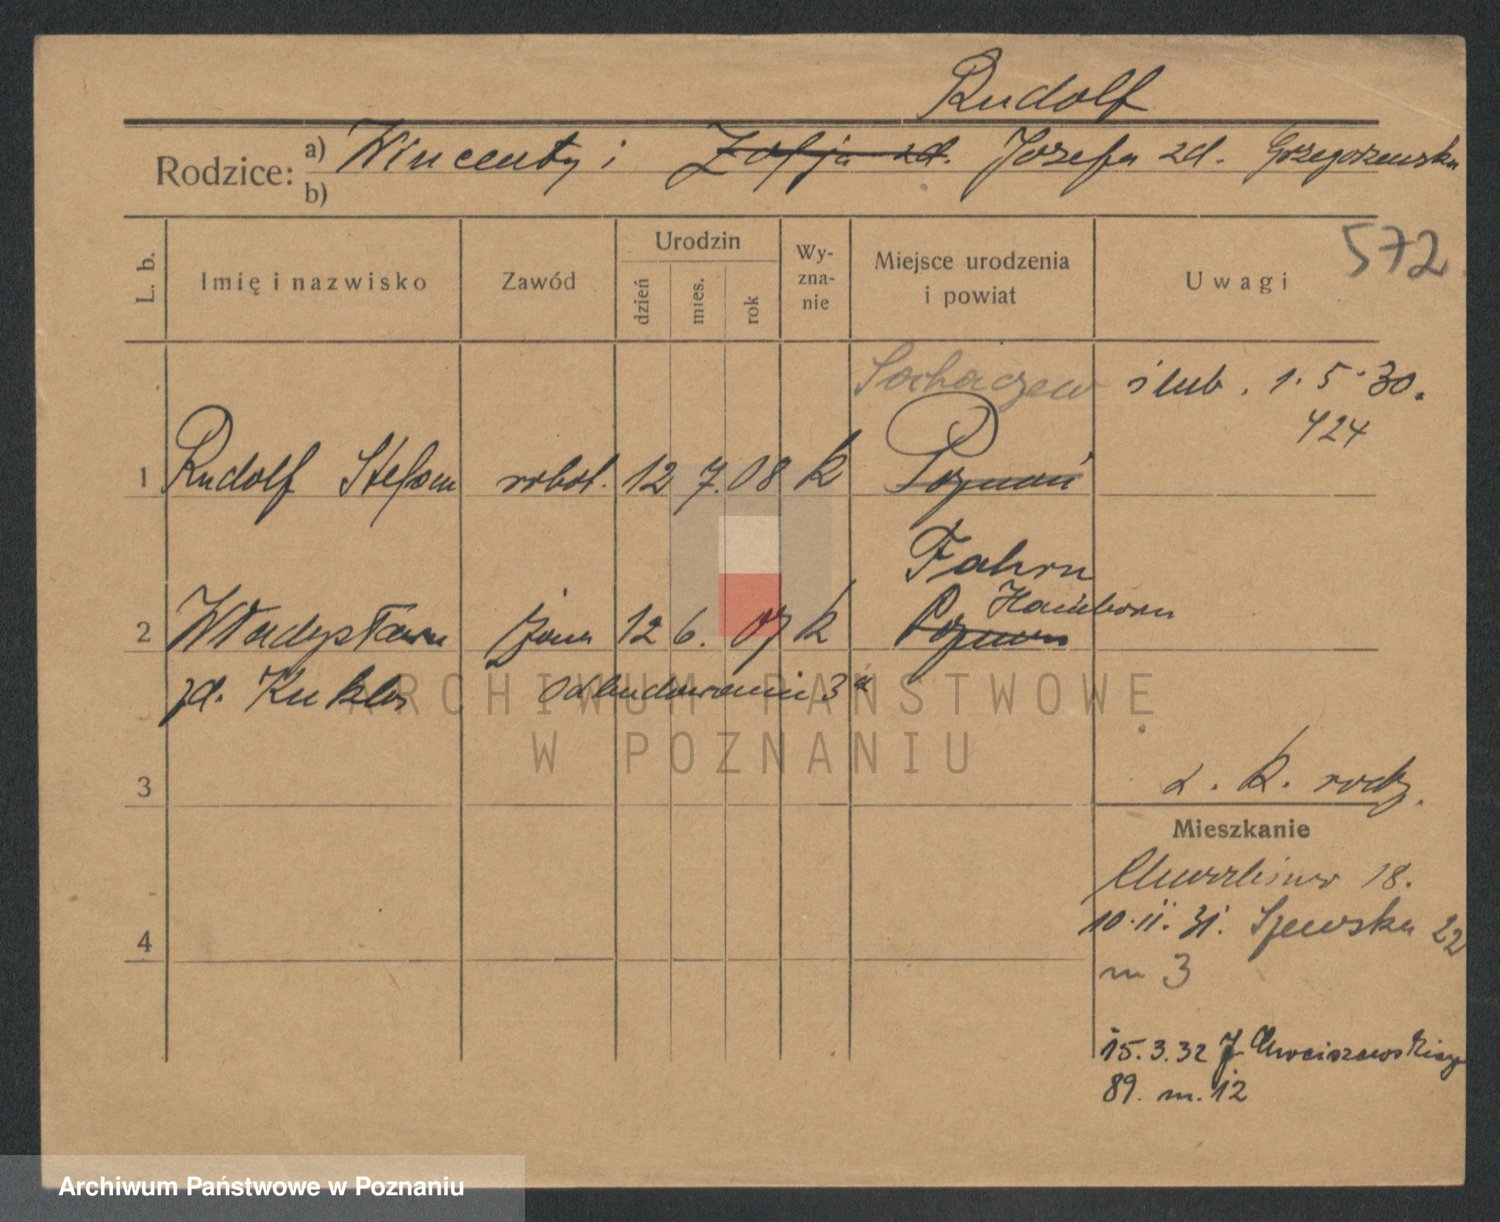 Rudolf
Rodzice: a) Wincenty i Zofja zd. Józefa zd. Grzegorzewska
b)
572
L. b. Imię i nazwisko Zawód Urodzin dzień mies. rok Wy-zna-nie Miejsce urodzenia i powiat Uwagi
Sochaczew ślub. 1. 5. 30.
424
1 Rudolf Stefan robot. 12 7. 08 k Poznań
Fahrn
Hamborn
2 Władysława żona 12 6. 07 k Poznań
zd. Kuklos
ARCHIWUM PAŃSTWOWE
W POZNANIU
3
k. rodz.
Mieszkanie
18.
10. 11. 31. 22
m 3
4
15. 3. 32
89. m. 12
Archiwum Państwowe w Poznaniu